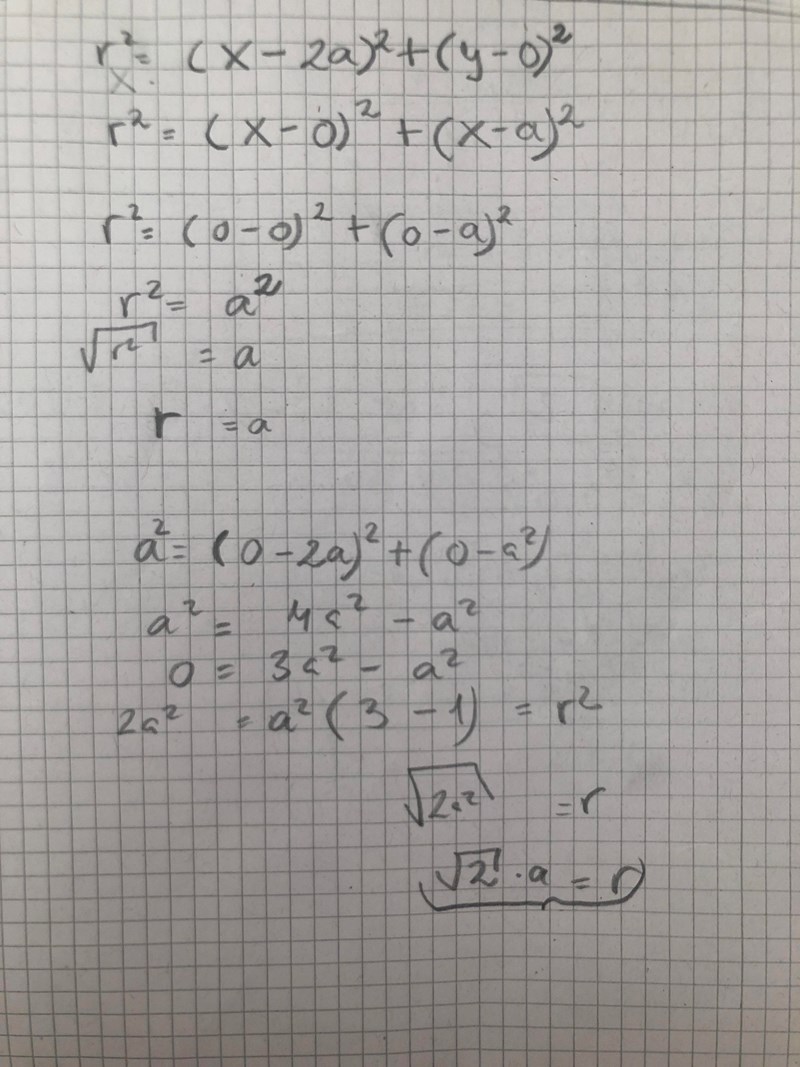 r² = (x - 2a)² + (y - 0)²
x.
r² = (x - 0)² + (x - a)²
r² = (0 - 0)² + (0 - a)²
r² = a²
√r² = a
r = a
a² = (0 - 2a)² + (0 - a²)
a² = 4a² - a²
0 = 3a² - a²
2a² = a² (3 - 1) = r²
√2a² = r
√2 · a = r